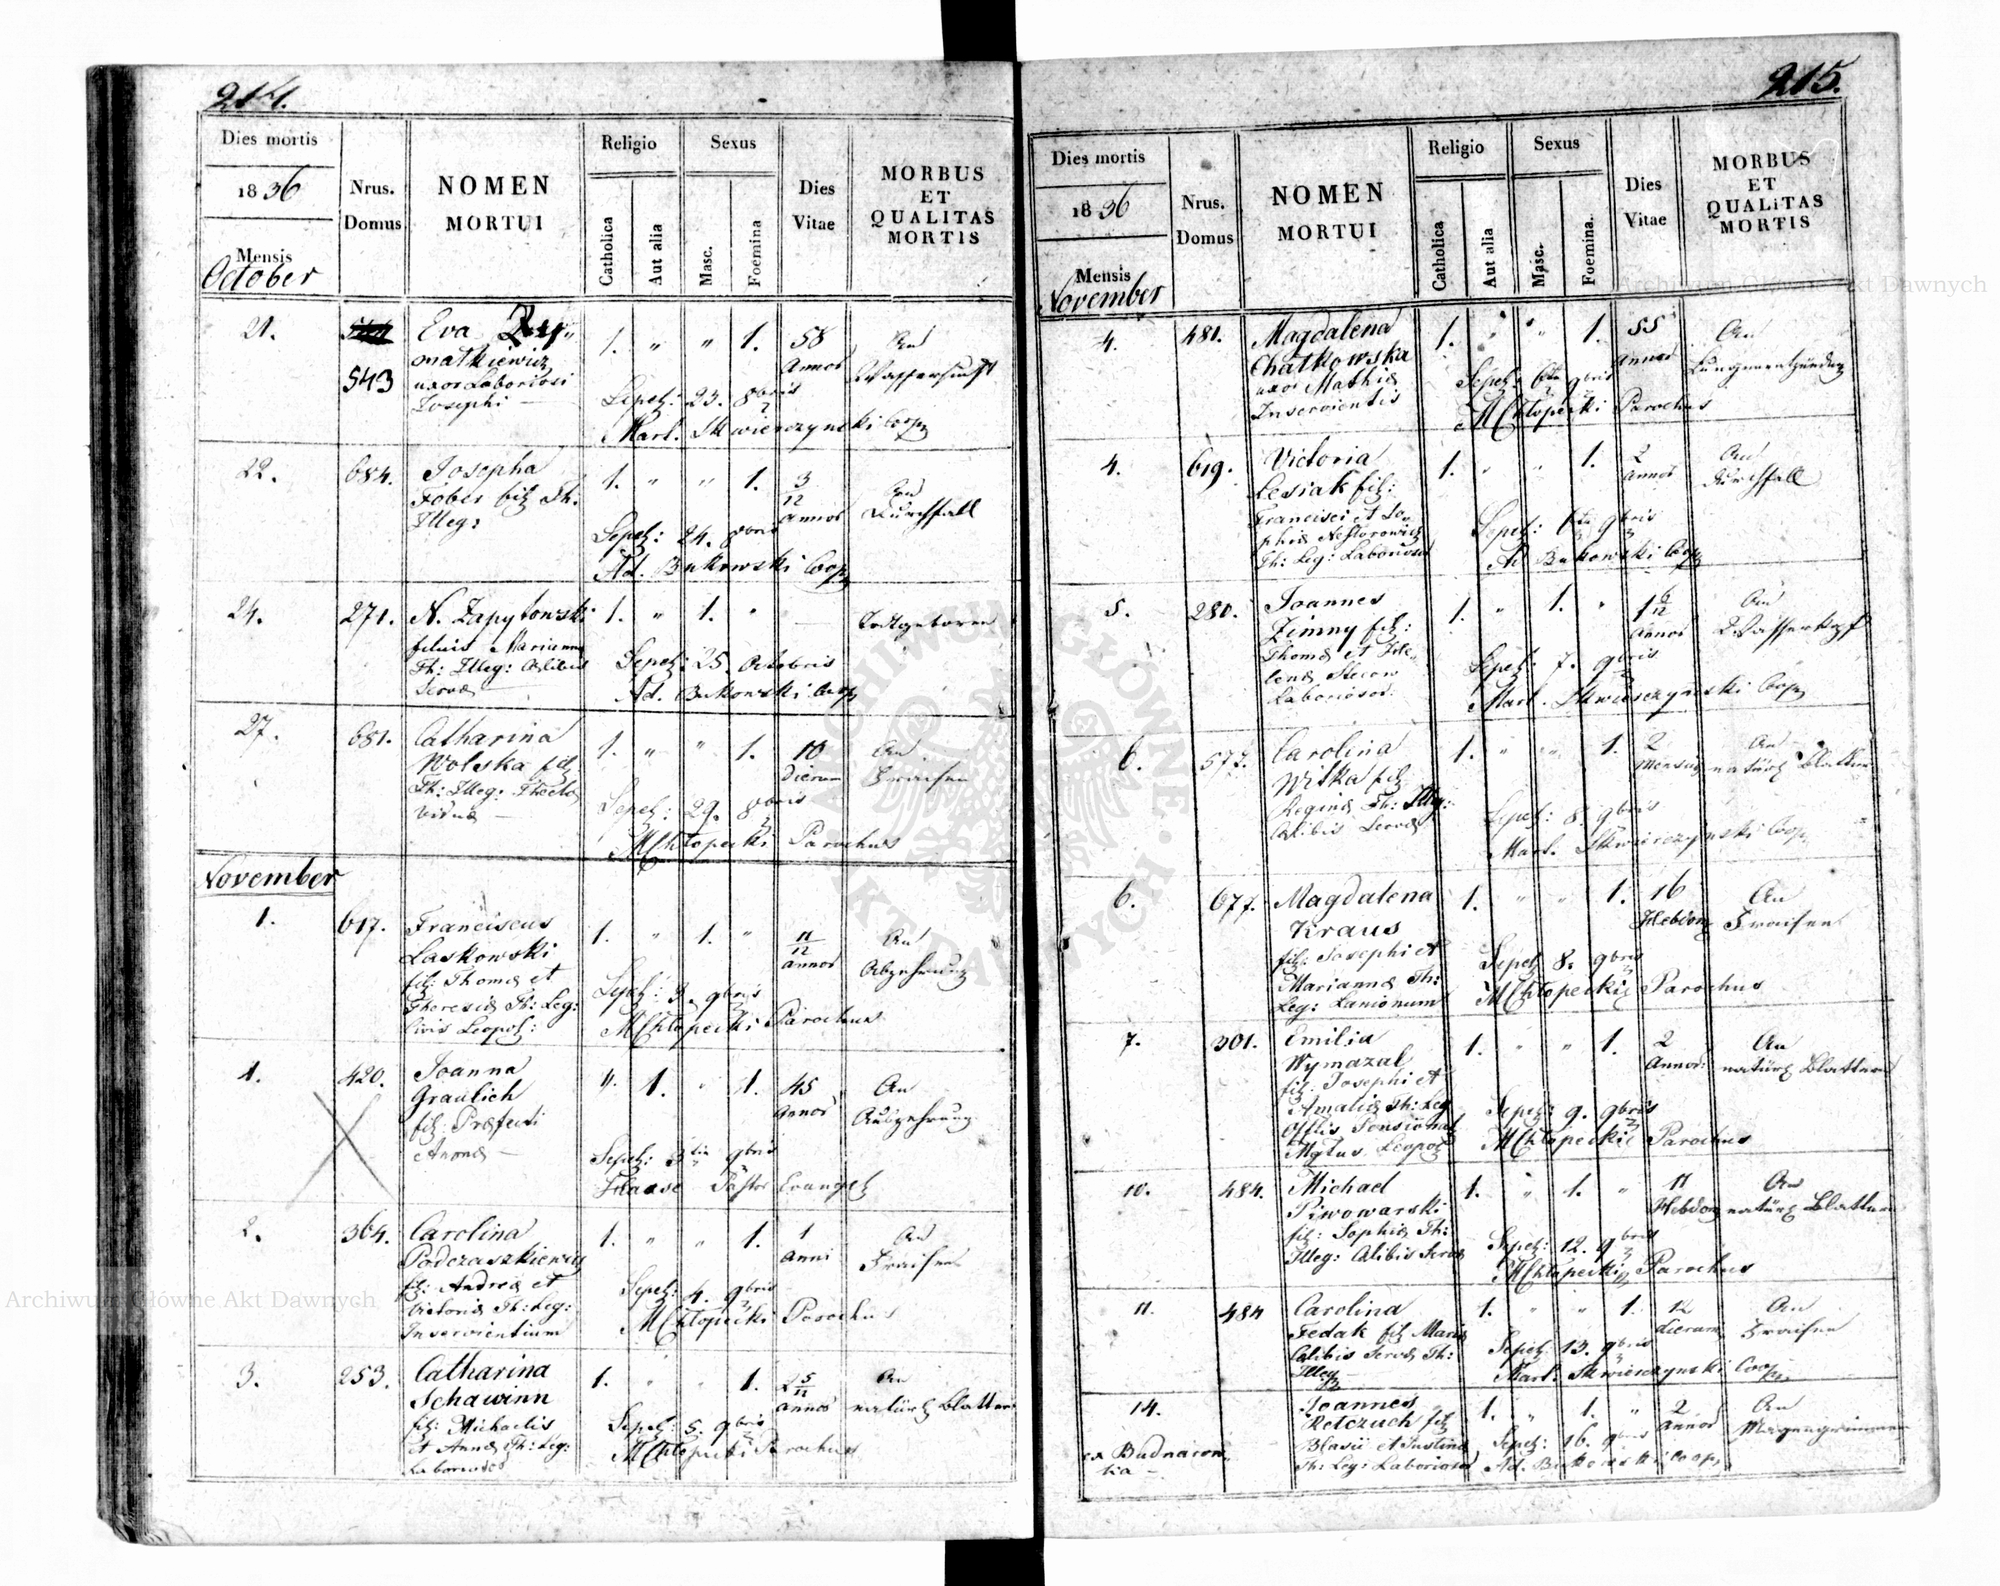 214.
Dies mortis
1836
Mensis
October
Nrus.
Domus
NOMEN
MORTUI
Religio
Catholica
Aut alia
Sexus
Masc.
Foemina
Dies
Vitae
MORBUS
ET
QUALITAS
MORTIS
21.
543
Eva
matkiewicz
uxor Laboriosi
Josephi —
1. " " 1.
58
Annos
An
Wassersucht
Sepel: 23. 8bris
Mart. Skwierczynski Coop
22.
684.
Josepha
Fober fil Th.
Illeg:
1. " " 1.
3
12
Annos
An
Durchfall
Sepel: 24. 8bris
Ad. Bukowski Coop
24.
271.
N. Zapytowski
filius Marianna
Th: Illeg: Celibis
Servae —
1. " 1. "
Todtgeboren
Sepel: 25. Octobris
Ad. Bukowski Coop
27.
681.
Catharina
Wolska fil
Th: Illeg: Theclae
viduae —
1. " " 1.
10
Dierum
An
Fraisen
Sepel: 29. 8bris
MChłopecki Parochus
November
1.
617.
Franciscus
Laskowski
fil: Thomae et
Theresiae Th: Leg:
Civis Leopol:
1. " 1. "
11
12
Annos
An
Abzehrung
Sepel: 3. 9bris
MChłopecki Parochus
1.
420.
Joanna
Graulich
fil: Praefecti
". 1. " 1.
45
Annos
An
Auszehrung
Sepel: 3tia 9bris
Haase Pastor Evangel
2.
364.
Carolina
Podczaszkiewicz
fil: Andreae et
Victoriae Th: Leg:
Inservientium
1. " " 1.
1
Anni
An
Fraisen
Sepel: 4. 9bris
MChłopecki Parochus
3.
253.
Catharina
Schawinn
fil: Michaelis
et Annae Th: Leg:
Laboriosor
1. " " 1.
2 5
12
Annos
An
natürl Blattern
Sepel: 5. 9bris
MChłopecki Parochus
215.
Dies mortis
1836
Mensis
November
Nrus.
Domus
NOMEN
MORTUI
Religio
Catholica
Aut alia
Sexus
Masc.
Foemina.
Dies
Vitae
MORBUS
ET
QUALITAS
MORTIS
4.
481.
Magdalena
Chatkowska
uxor Mathiae
Inservientis
1. " " 1.
55
Annos
An
Lungenentzündung
Sepel: 6ta 9bris
MChłopecki Parochus
4.
619.
Victoria
Lesiak fil:
Francisci et So
phiae Nestorowicz
Th: Leg: Laborioso
1. " " 1.
2
Annos
An
Durchfall
Sepel: 6ta 9bris
Ad Bukowski Coop
5.
280.
Joannes
Zimny fil:
Thomae et He
lenae
Laboriosor:
1. " 1. "
1 6
12
Annos
An
Wasserkopf
Sepel: 7. 9bris
Mart. Skwierczynski Coop
6.
577.
Carolina
Witka fil
Reginae Th: Illeg:
Celibis Servae
1. " " 1.
2
Mensium
An
natürl Blattern
Sepel: 8. 9bris
Mart. Skwierczynski Coop
6.
677.
Magdalena
Kraus
fil: Josephi et
Mariannae Th:
Leg: Lanionum
1. " " 1.
16
Hebdom
An
Fraisen
Sepel 8. 9bris
MChłopecki Parochus
7.
301.
Emilia
Wymazal
fil: Josephi et
Amaliae Th: Leg
Offlis Pensionat
Mgtus Leopol
1. " " 1.
2
Annos:
An
natürl Blattern
Sepel: 9. 9bris
MChłopecki Parochus
10.
484.
Michael
Piwowarski
fil: Sophiae Th:
Illeg: Celibis Servae
1. " 1. "
11
Hebdom
An
natürl Blattern
Sepel: 12. 9bris
MChłopecki Parochus
11.
484
Carolina
Fedak fil Mariae
Celibis Servae Th:
Illeg
1. " " 1.
12
Dierum
An
Fraisen
Sepel: 13. 9bris
Mart. Skwierczynski Coop
14.
ex Budnarow
ka —
Joannes
Kotczuch fil
Blasii et Justinae
Th: Leg: Laboriosor
1. " 1. "
2
Annos
An
Sepel: 16. 9bris
Ad. Bukowski Coop
Archiwum Główne Akt Dawnych
Archiwum Główne Akt Dawnych
ARCHIWUM GŁÓWNE · AKT DAWNYCH ·